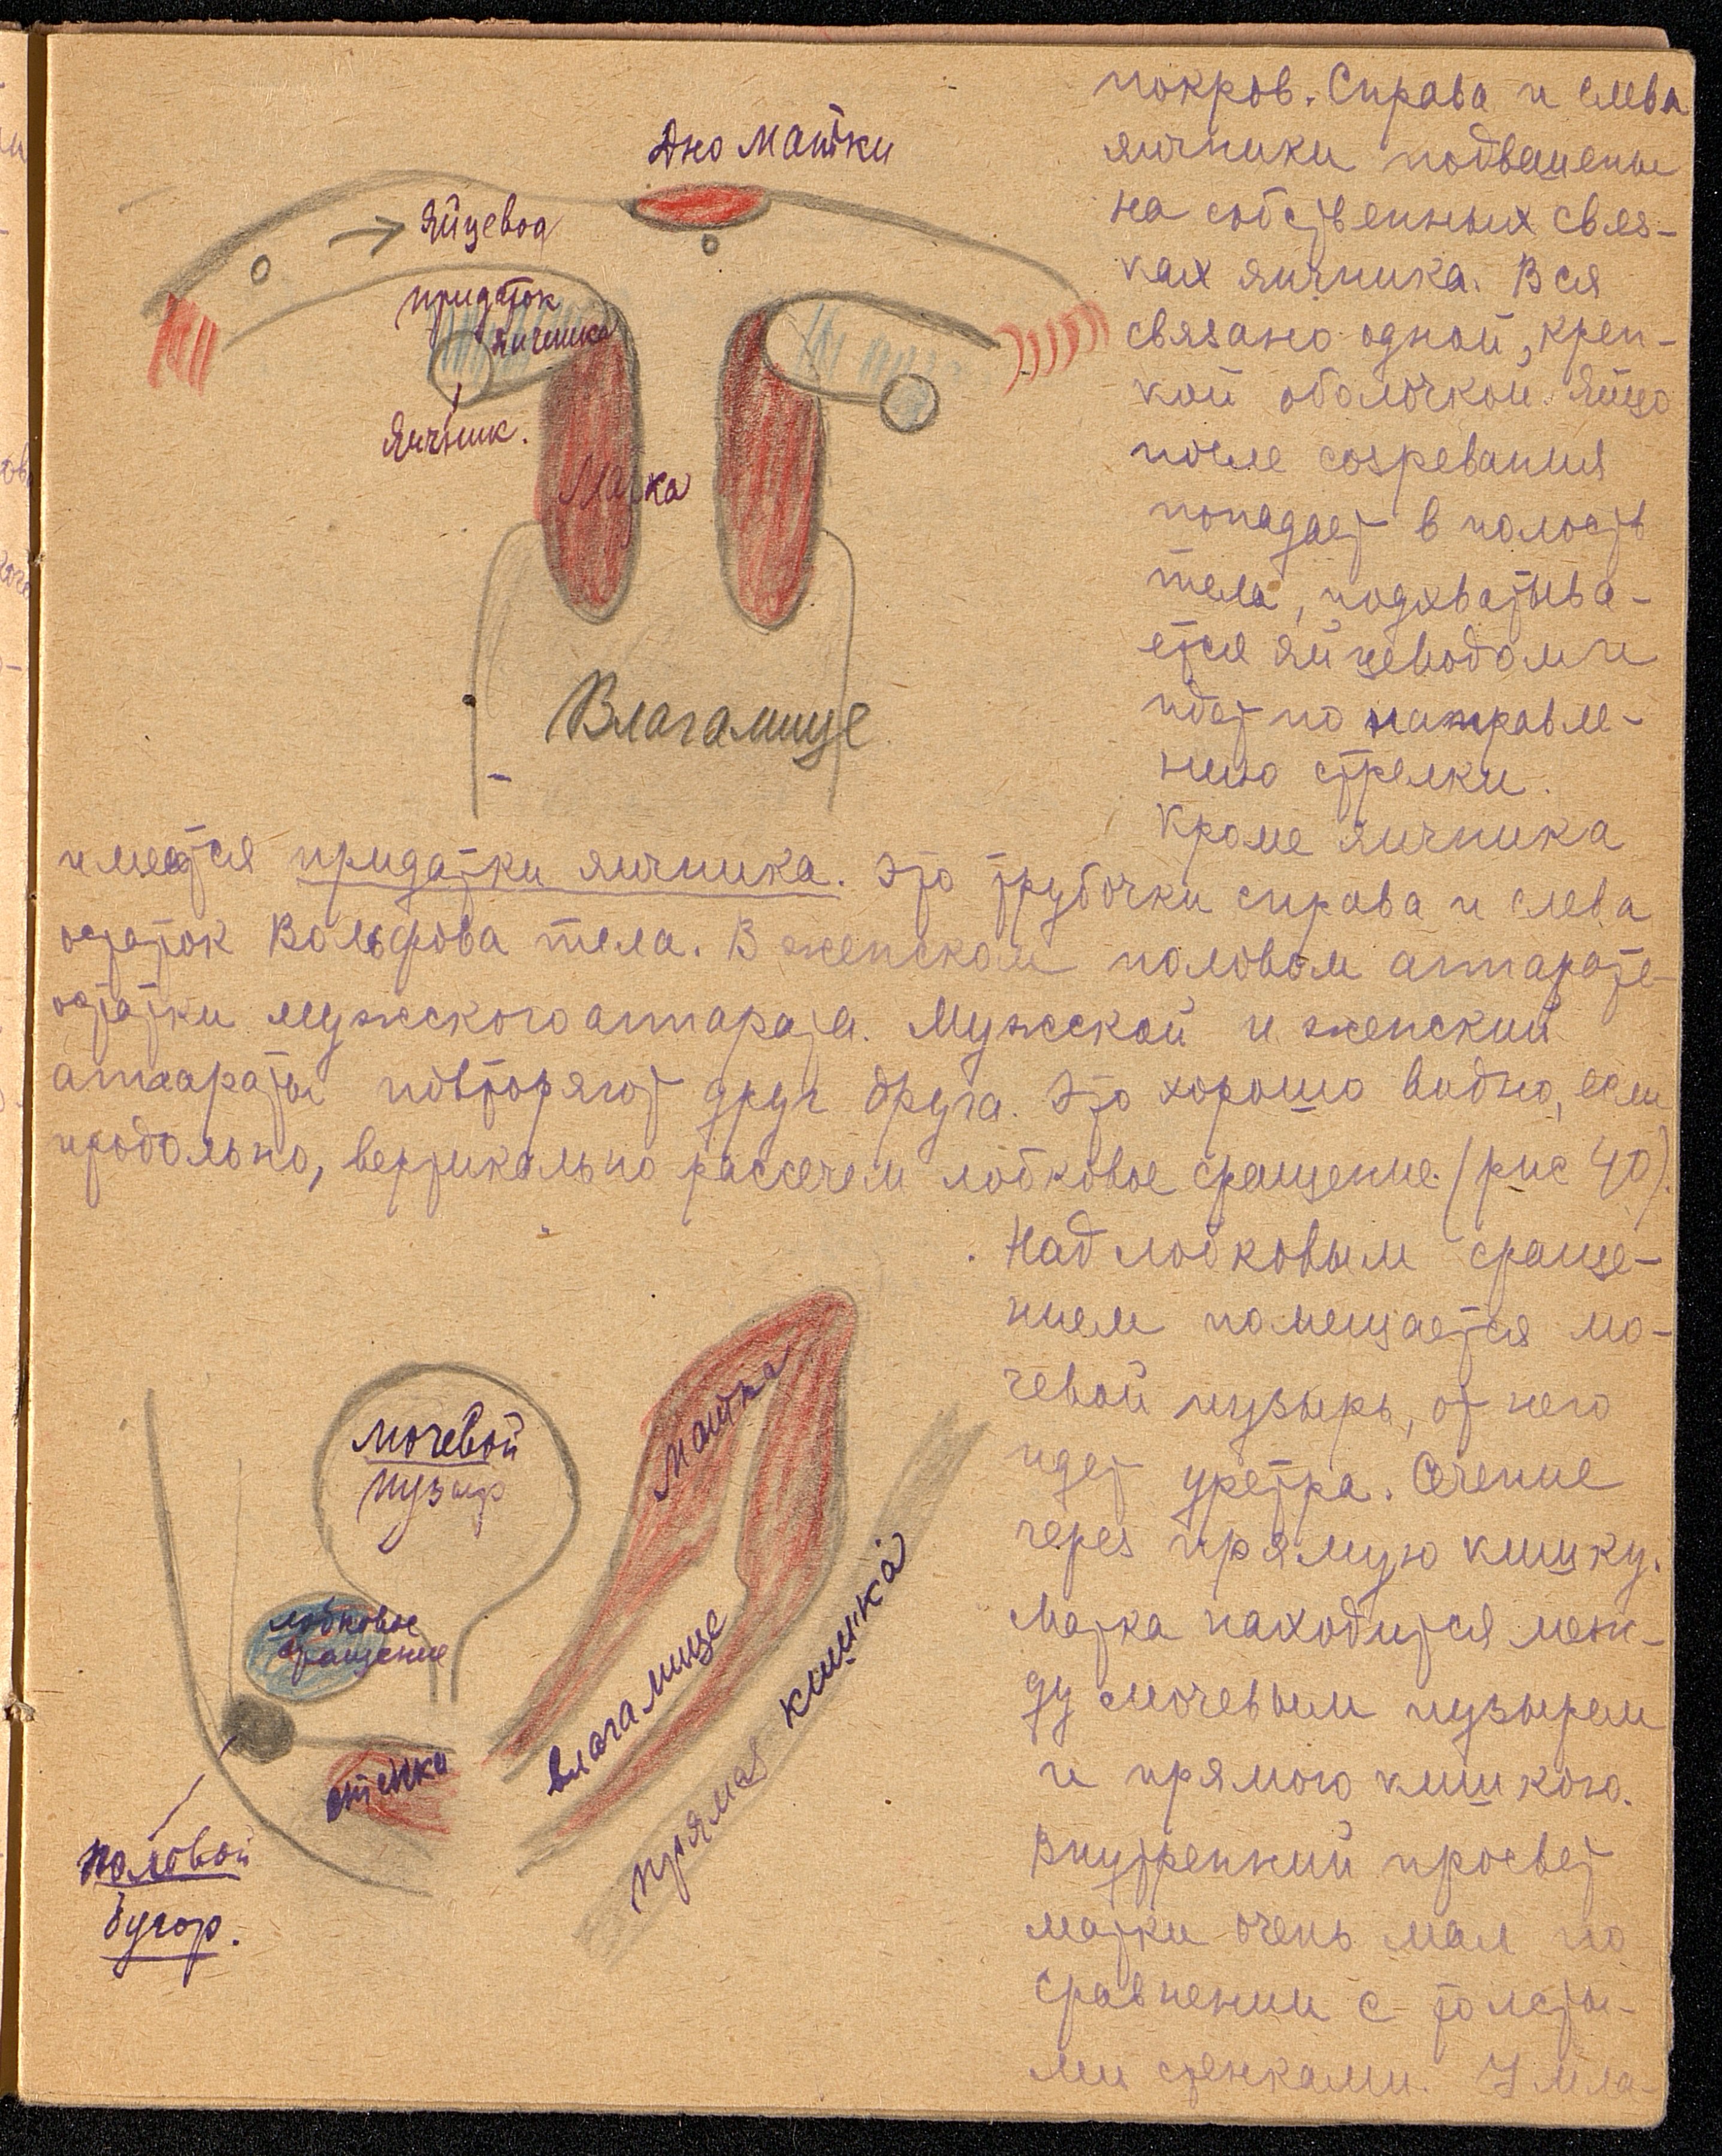 покров. Справа и слева
яичники подвешены
на собственных связ-
ках яичника. Вся
связано одной, креп-
кой оболочкой. Яйцо
после созревания
попадает в полость
тела, подхватыва-
ется яйцеводом и
идет по направле-
нию стрелки.
Кроме яичника
имеется придатки яичника. Это трубочки справа и слева
остаток Вольфова тела. В женском половом аппарате
остатки мужского аппарата. Мужской и женский
аппараты повторяют друг друга. Это хорошо видно, если
продольно, вертикально рассечем лобковое сращение. (рис 40).
Над лобковым сраще-
нием помещается мо-
чевой пузырь, от него
идет уретра. Сечение
через прямую кишку.
Матка находится меж-
ду мочевым пузырем
и прямою кишкою.
Внутренний просвет
матки очень мал по
сравнении с толсты-
ми стенками. У мла-
Дно матки
Яйцевод
придаток
яичника
Яичник.
Матка
Влагалище
мочевой
пузыр
матка
лобковое
сращение
влагалище
прямая кишка
стенка
половой
бугор.